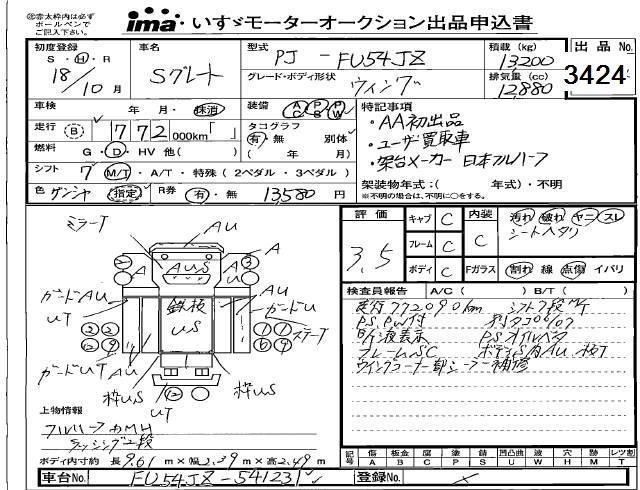 ※赤太枠内は必ず
ボールペンで
ご記入下さい。
ima いすゞモーターオークション出品申込書
初度登録 S・H・R 18/10月
車名 Sグレート
型式 PJ－FU54JZ
グレード・ボディ形状 ウィング
積載(kg) 13200
排気量(cc) 12880
出品No. 3424
車検 年 月・抹消
装備 AC PS PW
走行 B 772 000km「 」
タコグラフ 有・無 別体 ( 年 月)
燃料 G・D・HV 他( )
シフト 7 M/T・A/T・特殊(2ペダル・3ペダル)
色 ゲンシャ 指定 R券 有・無 13,580円
特記事項
・AA初出品
・ユーザー買取車
・架台メーカー 日本フルハーフ
架装物年式:( 年式)・不明
※不明の場合は、不明に○をする。
評価 3.5
キャブ C
フレーム C
ボディ C
内装 C
汚れ 破れ ヤニ スレ
シートヘタリ
Fガラス 割れ 線 点傷 イバリ
検査員報告 A/C( ) B/T( )
走行772090km シフト7段M/T
P.S, PW付
P.Sオイルベタ
フレームSC
ウイングコーナー部シーラー補修
ミラーT AU
A AUS A
ガードAU UT
鉄板US
AU ガードU
ステーT
ガードUT AU
枠US 枠US
UT
上物情報
フルハーフ
ラッシング2段
ボディ内寸約 長9.61m×幅2.39m×高2.49m
記号 傷A 板金B 腐C 塗P 錆S 凹凸曲U 波W 穴H 跡M レツ割T
車台No. FU54JZ-54123
登録No.